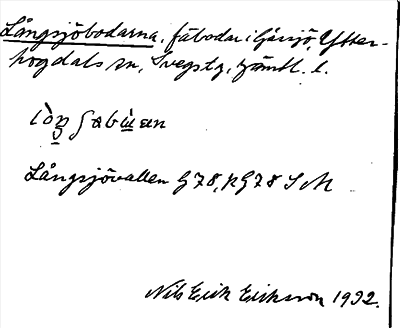 Långsjöbodarna, fäbodar i Gåssjö, Ytter-
hogdals sn, Svegs tg, Jämtl. l.
Långsjövallen G 78, N G 78 S M
Nils Erik Eriksson 1992.